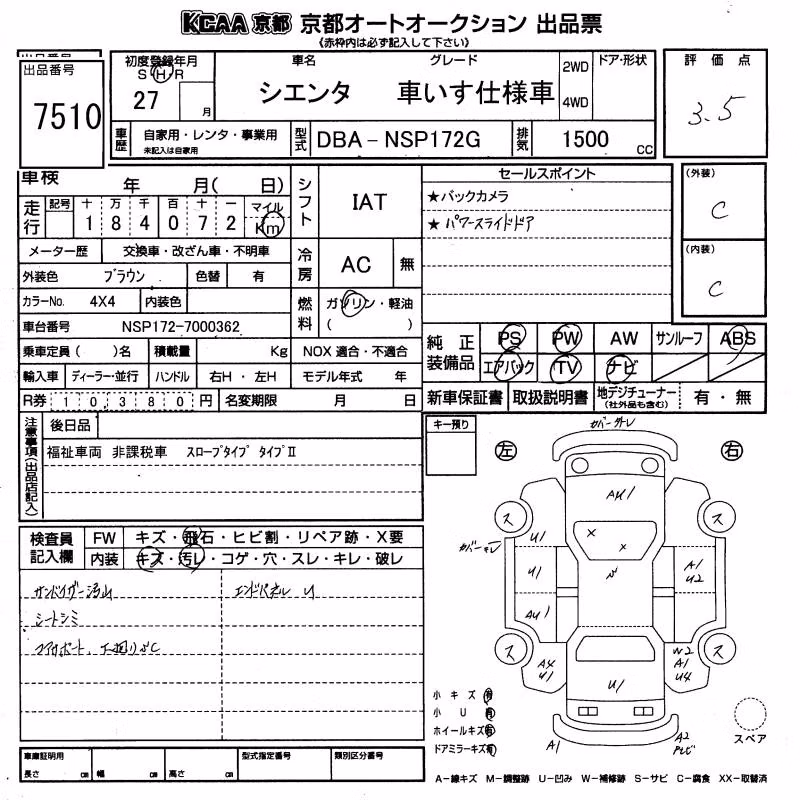 KCAA 京都 京都オートオークション 出品票
《赤枠内は必ず記入して下さい》
出品番号
7510
初度登録年月
S H R
27 月
車名
シエンタ
グレード
車いす仕様車
2WD
4WD
ドア・形状
車歴
自家用・レンタ・事業用
未記入は自家用
型式
DBA－NSP172G
排気
1500 CC
評価点
3.5
車検 年 月( 日)
走行
記号 十 万 千 百 十 一 マイル
1 8 4 0 7 2 Km
シフト
IAT
メーター歴 交換車・改ざん車・不明車
冷房
AC 無
外装色 ブラウン 色替 有
カラーNo. 4X4 内装色
燃料
ガソリン・軽油
( )
車台番号 NSP172-7000362
乗車定員( )名 積載量 Kg NOX 適合・不適合
輸入車 ディーラー・並行 ハンドル 右H・左H モデル年式 年
R券 10,380円 名変期限 月 日
セールスポイント
★バックカメラ
★パワースライドドア
(外装)
C
(内装)
C
純正装備品
PS PW AW サンルーフ ABS
エアバック TV ナビ
新車保証書 取扱説明書 地デジチューナー
(社外品も含む)
有・無
注意事項(出品店記入)
後日品
福祉車両 非課税車 スロープタイプ タイプⅡ
キー預り
検査員記入欄
FW キズ・飛石・ヒビ割・リペア跡・X要
内装 キズ・汚レ・コゲ・穴・スレ・キレ・破レ
サンバイザー汚れ エンドパネル U
シートシミ
左
右
カバー外レ
AU1
ス
ス
U1
U1
AU1
A1
U2
ス
ス
A4
U1
W2
A1
U4
U1
A1
A2
小キズ 有
小U 有
ホイールキズ 有
ドアミラーキズ 有
スペア
車庫証明用
長さ cm 幅 cm 高さ cm
型式指定番号
類別区分番号
A－線キズ M－調整跡 U－凹み W－補修跡 S－サビ C－腐食 XX－取替済